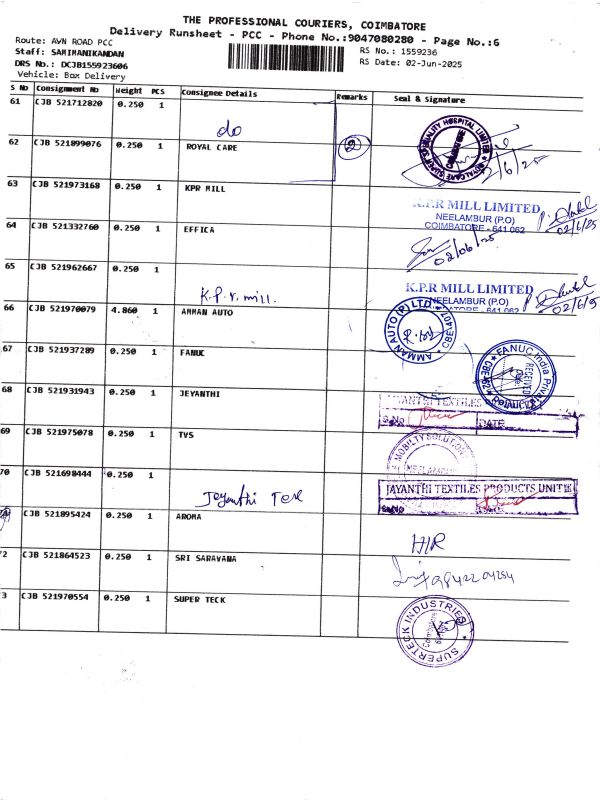 THE PROFESSIONAL COURIERS, COIMBATORE
Delivery Runsheet - PCC - Phone No.:9047080280 - Page No.:6
Route: AVN ROAD PCC
RS No.: 1559236
Staff: SAMIMANIKANDAN
DRS No.: DCJB155923606
RS Date: 02-Jun-2025
Vehicle: Box Delivery
S No Consignment No Weight PCS Consignee Details Remarks Seal & Signature
61 CJB 521712820 0.250 1
do
62 CJB 521899076 0.250 1 ROYAL CARE
63 CJB 521973168 0.250 1 KPR MILL
K.P.R MILL LIMITED
NEELAMBUR (P.O)
COIMBATORE - 641 062
02/6/25
64 CJB 521332760 0.250 1 EFFICA
02/06/25
65 CJB 521962667 0.250 1
K.P.r. mill.
K.P.R MILL LIMITED
NEELAMBUR (P.O)
641 062
66 CJB 521970079 4.860 1 AMMAN AUTO
AMMAN AUTO (P) LTD. CBE
67 CJB 521937289 0.250 1 FANUC
FANUC India Private Limited
RECEIVED
68 CJB 521931943 0.250 1 JEYANTHI
JAYANTHI TEXTILES
S.NO DATE
69 CJB 521975078 0.250 1 TVS
MOBILITY SOLUTION
70 CJB 521698444 0.250 1
Jeyanthi Tex
JAYANTHI TEXTILES PRODUCTS UNIT
CJB 521895424 0.250 1 AROMA
H/R
72 CJB 521864523 0.250 1 SRI SARAVANA
73 CJB 521970554 0.250 1 SUPER TECK
SUPERTECK INDUSTRIES
Coimbatore